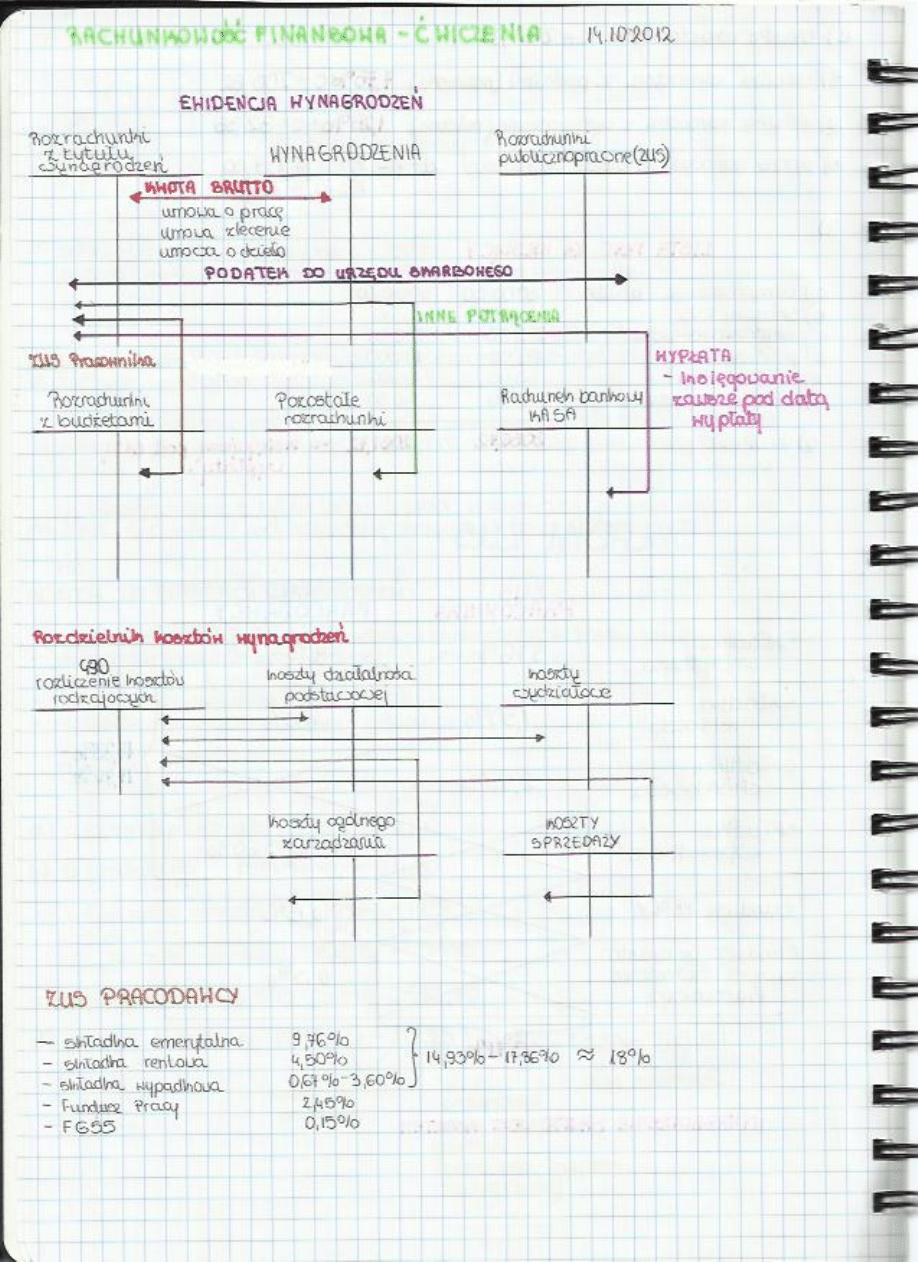 RACHUNKOWOŚĆ FINANSOWA - ĆWICZENIA 14.10.2012
EWIDENCJA WYNAGRODZEŃ
Rozrachunki
z tytułu
wynagrodzeń
WYNAGRODZENIA
Rozrachunki
publicznoprawne (ZUS)
KWOTA BRUTTO
umowa o pracę
umowa zlecenie
umowa o dzieło
PODATEK DO URZĘDU SKARBOWEGO
INNE POTRĄCENIA
ZUS Pracownika
WYPŁATA
- księgowanie
zawsze pod datą
wypłaty
Rozrachunki
z budżetami
Pozostałe
rozrachunki
Rachunek bankowy
KASA
Rozdzielnik kosztów wynagrodzeń
490
rozliczenie kosztów
rodzajowych
koszty działalności
podstawowej
koszty
wydziałowe
koszty ogólnego
zarządzania
KOSZTY
SPRZEDAŻY
ZUS PRACODAWCY
- składka emerytalna 9,76%
- składka rentowa 4,50%
- składka wypadkowa 0,67% - 3,60%
14,93% - 17,86% ≈ 18%
- Fundusz Pracy 2,45%
- FGŚŚ 0,15%